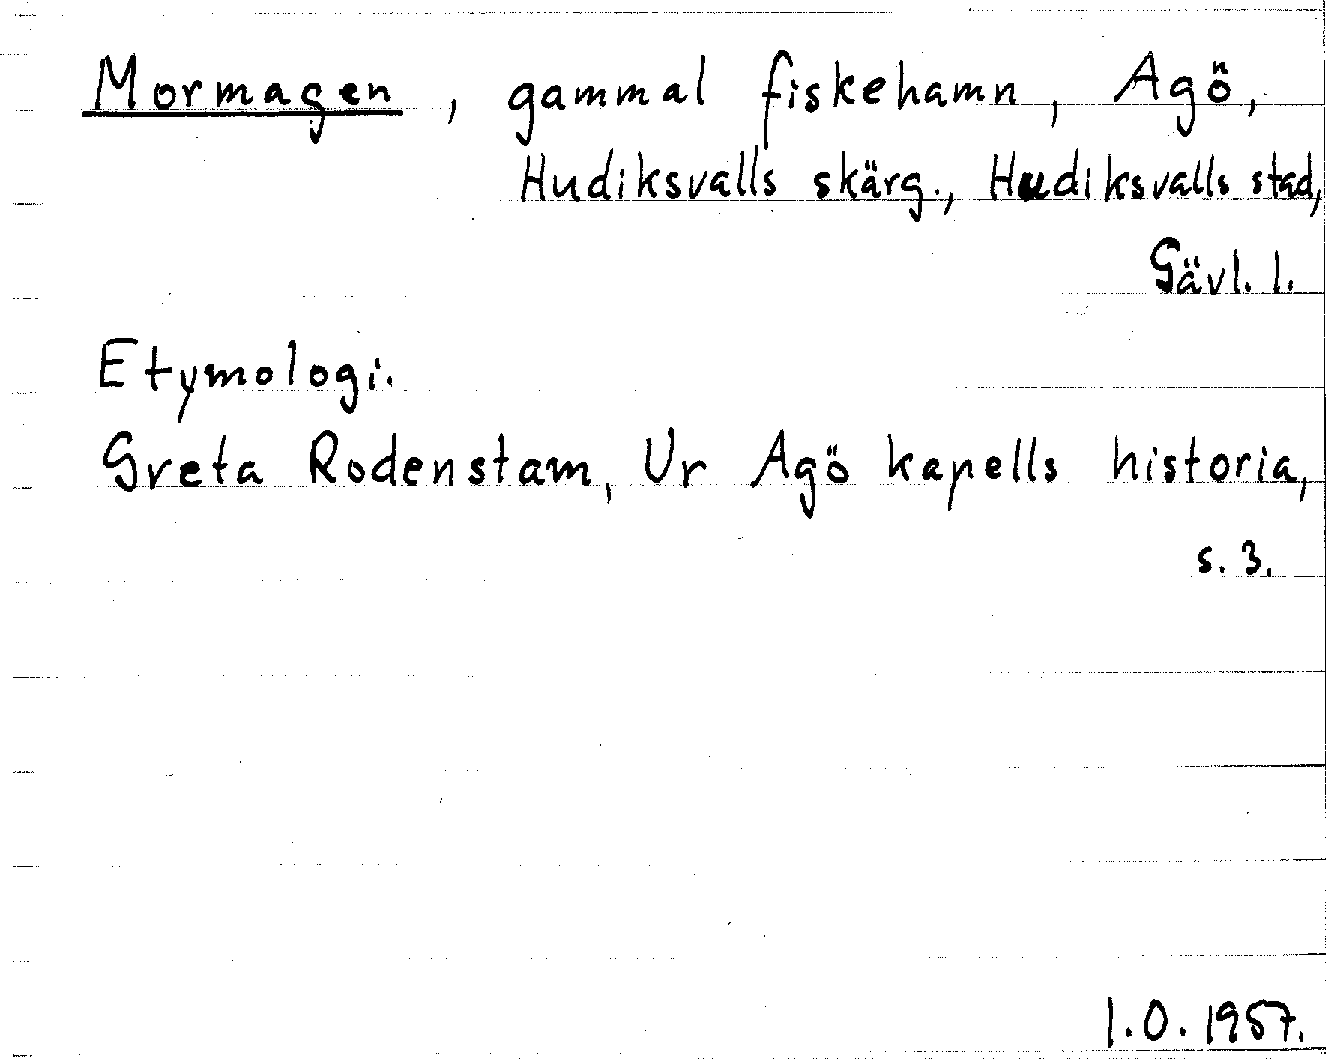 Mormagen, gammal fiskehamn, Agö,
Hudiksvalls skärg., Hudiksvalls stad,
Gävl. l.
Etymologi.
Greta Rodenstam, Ur Agö kapells historia,
s. 3.
I.O. 1957.